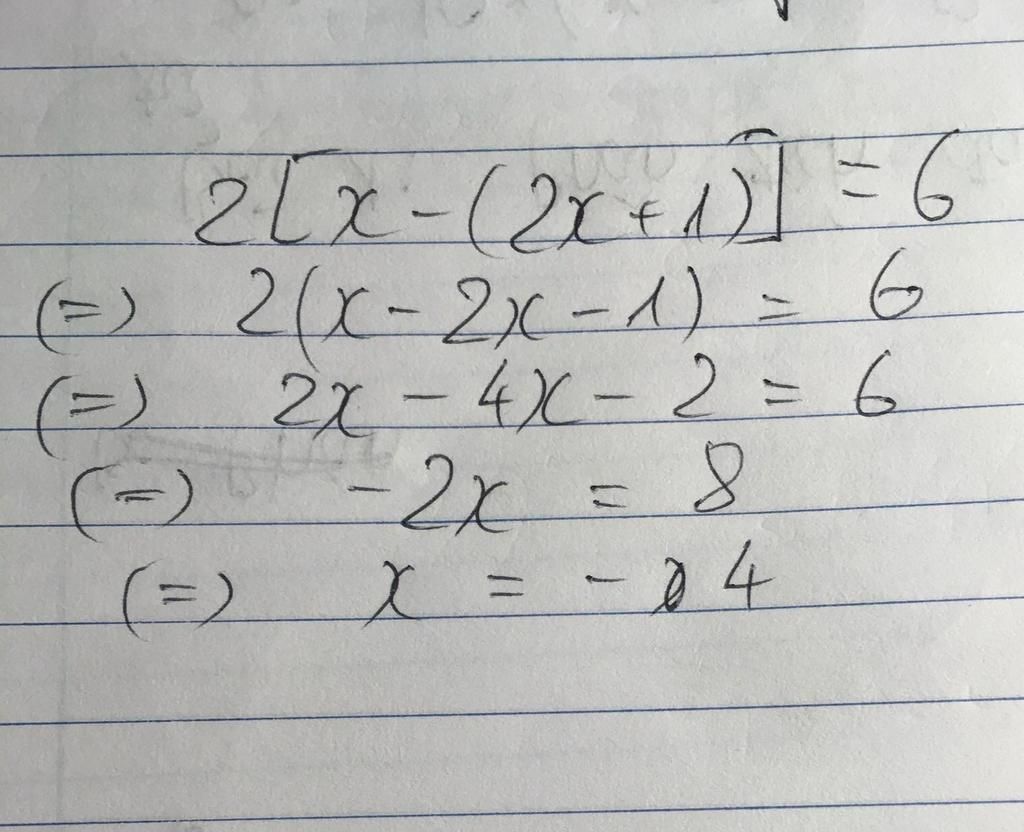 2[x-(2x+1)] = 6
(=) 2(x-2x-1) = 6
(=) 2x - 4x - 2 = 6
(=) -2x = 8
(=) x = - 4